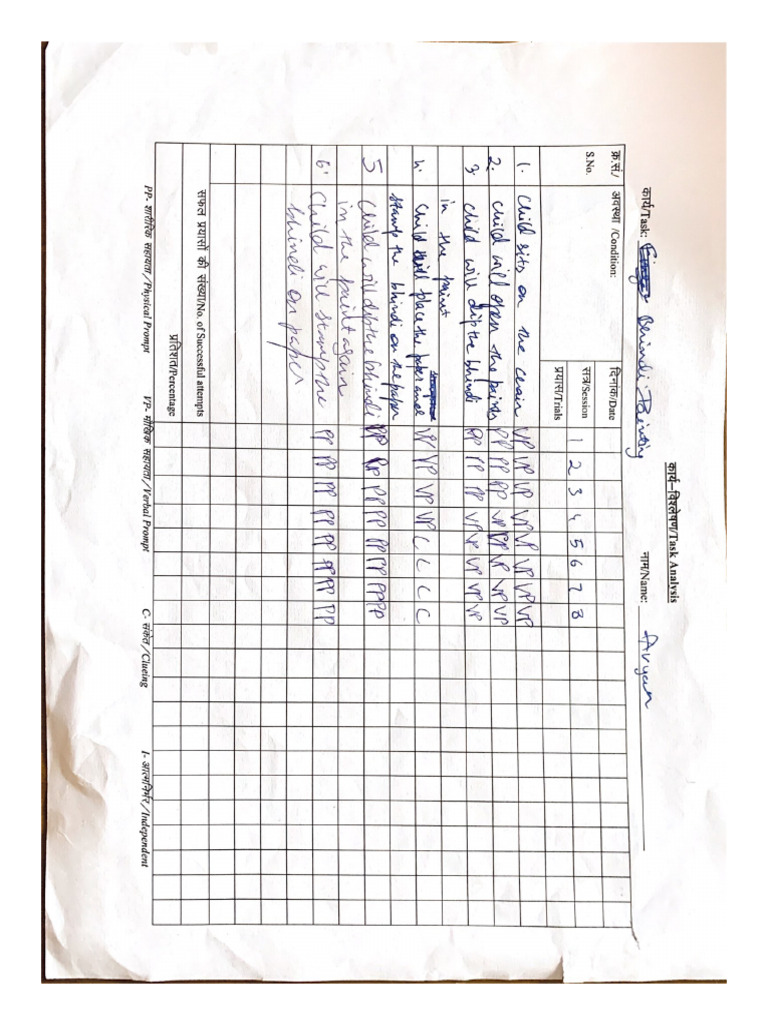 कार्य–विश्लेषण/Task Analysis
कार्य/Task: Bhindi Painting नाम/Name: Aryan
क्र.सं./ अवस्था /Condition: दिनांक/Date
S.No. सत्र/Session 1 2 3 4 5 6 7 8
प्रयास/Trials
1. Child sits on the chair VP VP VP VP VP VP VP VP
2. Child will open the paint PP PP PP VP VP VP VP VP
3 child will dip the bhindi PP PP PP VP VP VP VP VP
in the paint
4. Child will place the paper and VP VP VP VP C C C C
stamp the bhindi on the paper
5 Child will dip the bhindi PP PP PP PP PP PP PP PP
in the paint again
6. Child will stamp the PP PP PP PP PP PP PP PP
bhindi on paper
सफल प्रयासों की संख्या/No. of Successful attempts
प्रतिशत/Percentage
PP- शारीरिक सहायता/Physical Prompt VP- मौखिक सहायता/Verbal Prompt C- संकेत/Clueing I- आत्मनिर्भर/Independent